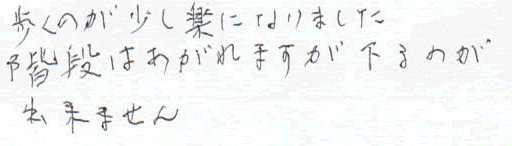 歩くのが少し楽になりました
階段はあがれますが下るのが
出来ません